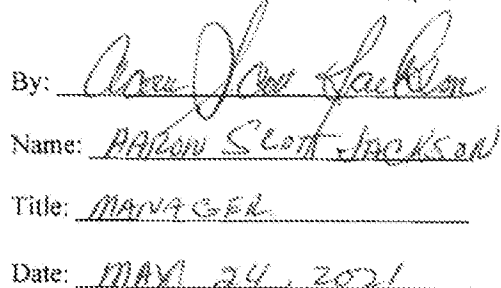 By: Aaron Scott Jackson
Name: AARON SCOTT JACKSON
Title: MANAGER
Date: MAY 24, 2021